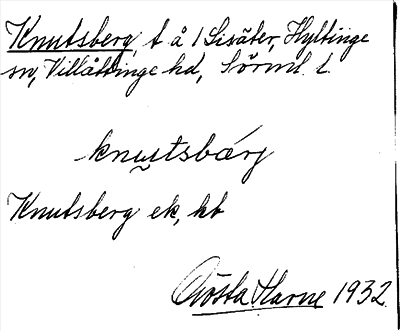 Knutsberg, t å 1 Sisäter, Hyltinge
sn, Villåttinge hd, Sörml. l.
knutsbárj
Knutsberg ek, kb
Gösta Harne 1932.